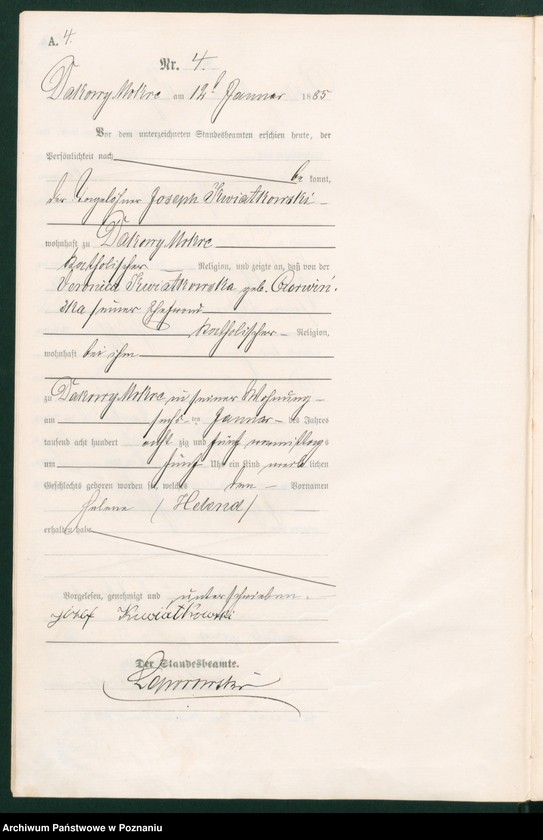 A. 4.
Nr. 4.
Dakowy Mokre am 12ten Januar 1885
Vor dem unterzeichneten Standesbeamten erschien heute, der
Persönlichkeit nach
be kannt,
der Tagelöhner Joseph Kwiatkowski
wohnhaft zu Dakowy Mokre
katholischer Religion, und zeigte an, daß von der
Veronica Kwiatkowska geb. Czerwiń-
ska seiner Ehefrau
katholischer Religion,
wohnhaft bei ihm
zu Dakowy Mokre in seiner Wohnung
am sechs ten Januar des Jahres
tausend acht hundert acht zig und fünf vormittags
um fünf Uhr ein Kind weib lichen
Geschlechts geboren worden sei, welches den Vornamen
Helene (Helena)
erhalten habe
Vorgelesen, genehmigt und unterschrieben.
Józef Kwiatkowski
Der Standesbeamte.
Archiwum Państwowe w Poznaniu